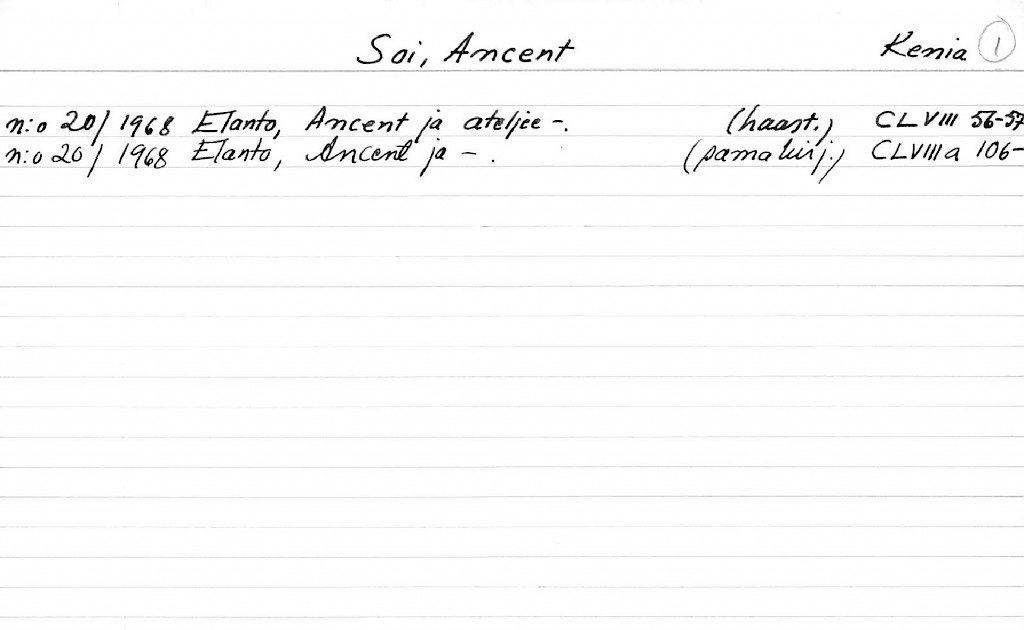 Soi, Ancent Kenia 1
n:o 20/1968 Elanto, Ancent ja ateljee -. (haast.) CLVIII 56-57
n:o 20/1968 Elanto, Ancent ja -. (samakirj.) CLVIIIa 106-